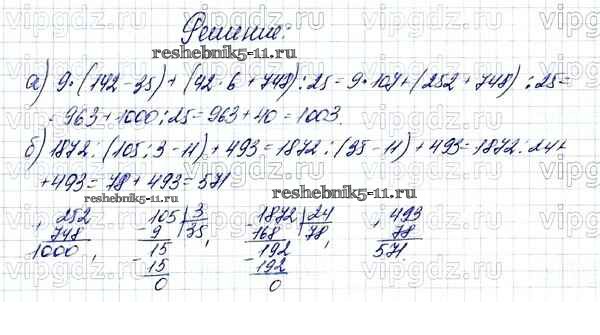 Решение:
reshebnik5-11.ru
а) 9·(142-35)+(42·6+748):25=9·107+(252+748):25=
=963+1000:25=963+40=1003.
б) 1872:(105:3-11)+493=1872:(35-11)+493=1872:24+
+493=78+493=571
reshebnik5-11.ru
+ 252
748
1000,
- 105 | 3
9 | 35,
- 15
15
0
- 1872 | 24
168 | 78,
- 192
192
0
+ 493
78
571.
vipgdz.ru vipgdz.ru vipgdz.ru